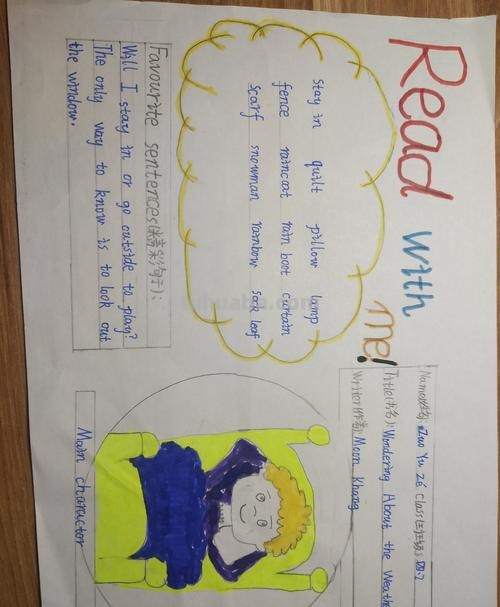 Read with me!
Name(姓名): Luo Yu Ze Class(班级): 四.2
Title(书名): Wondering About the Weathe
Writer(作者): Moon Khang
stay in quilt pillow lamp
fence raincoat rain boot curtain
scarf snowman rainbow sock leaf
Favourite sentences(精彩句子):
Will I stay in or go outside to play?
The only way to know is to look out
the window.
Main character